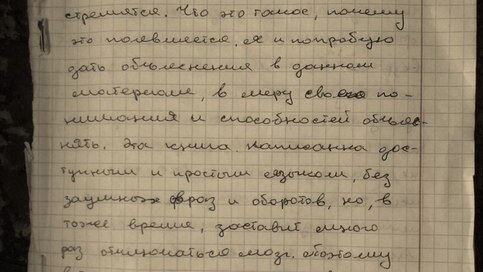 стремятся. Что это такое, почему
это появляется, я и попробую
дать объяснения в данном
материале, в меру своего по-
нимания и способностей объяс-
нять. Эта книга. Написанна дос-
тупным и простым языком, без
заумных фраз и оборотов, но, в
тоже время, заставит много
раз отключаться мозг. Поэтому